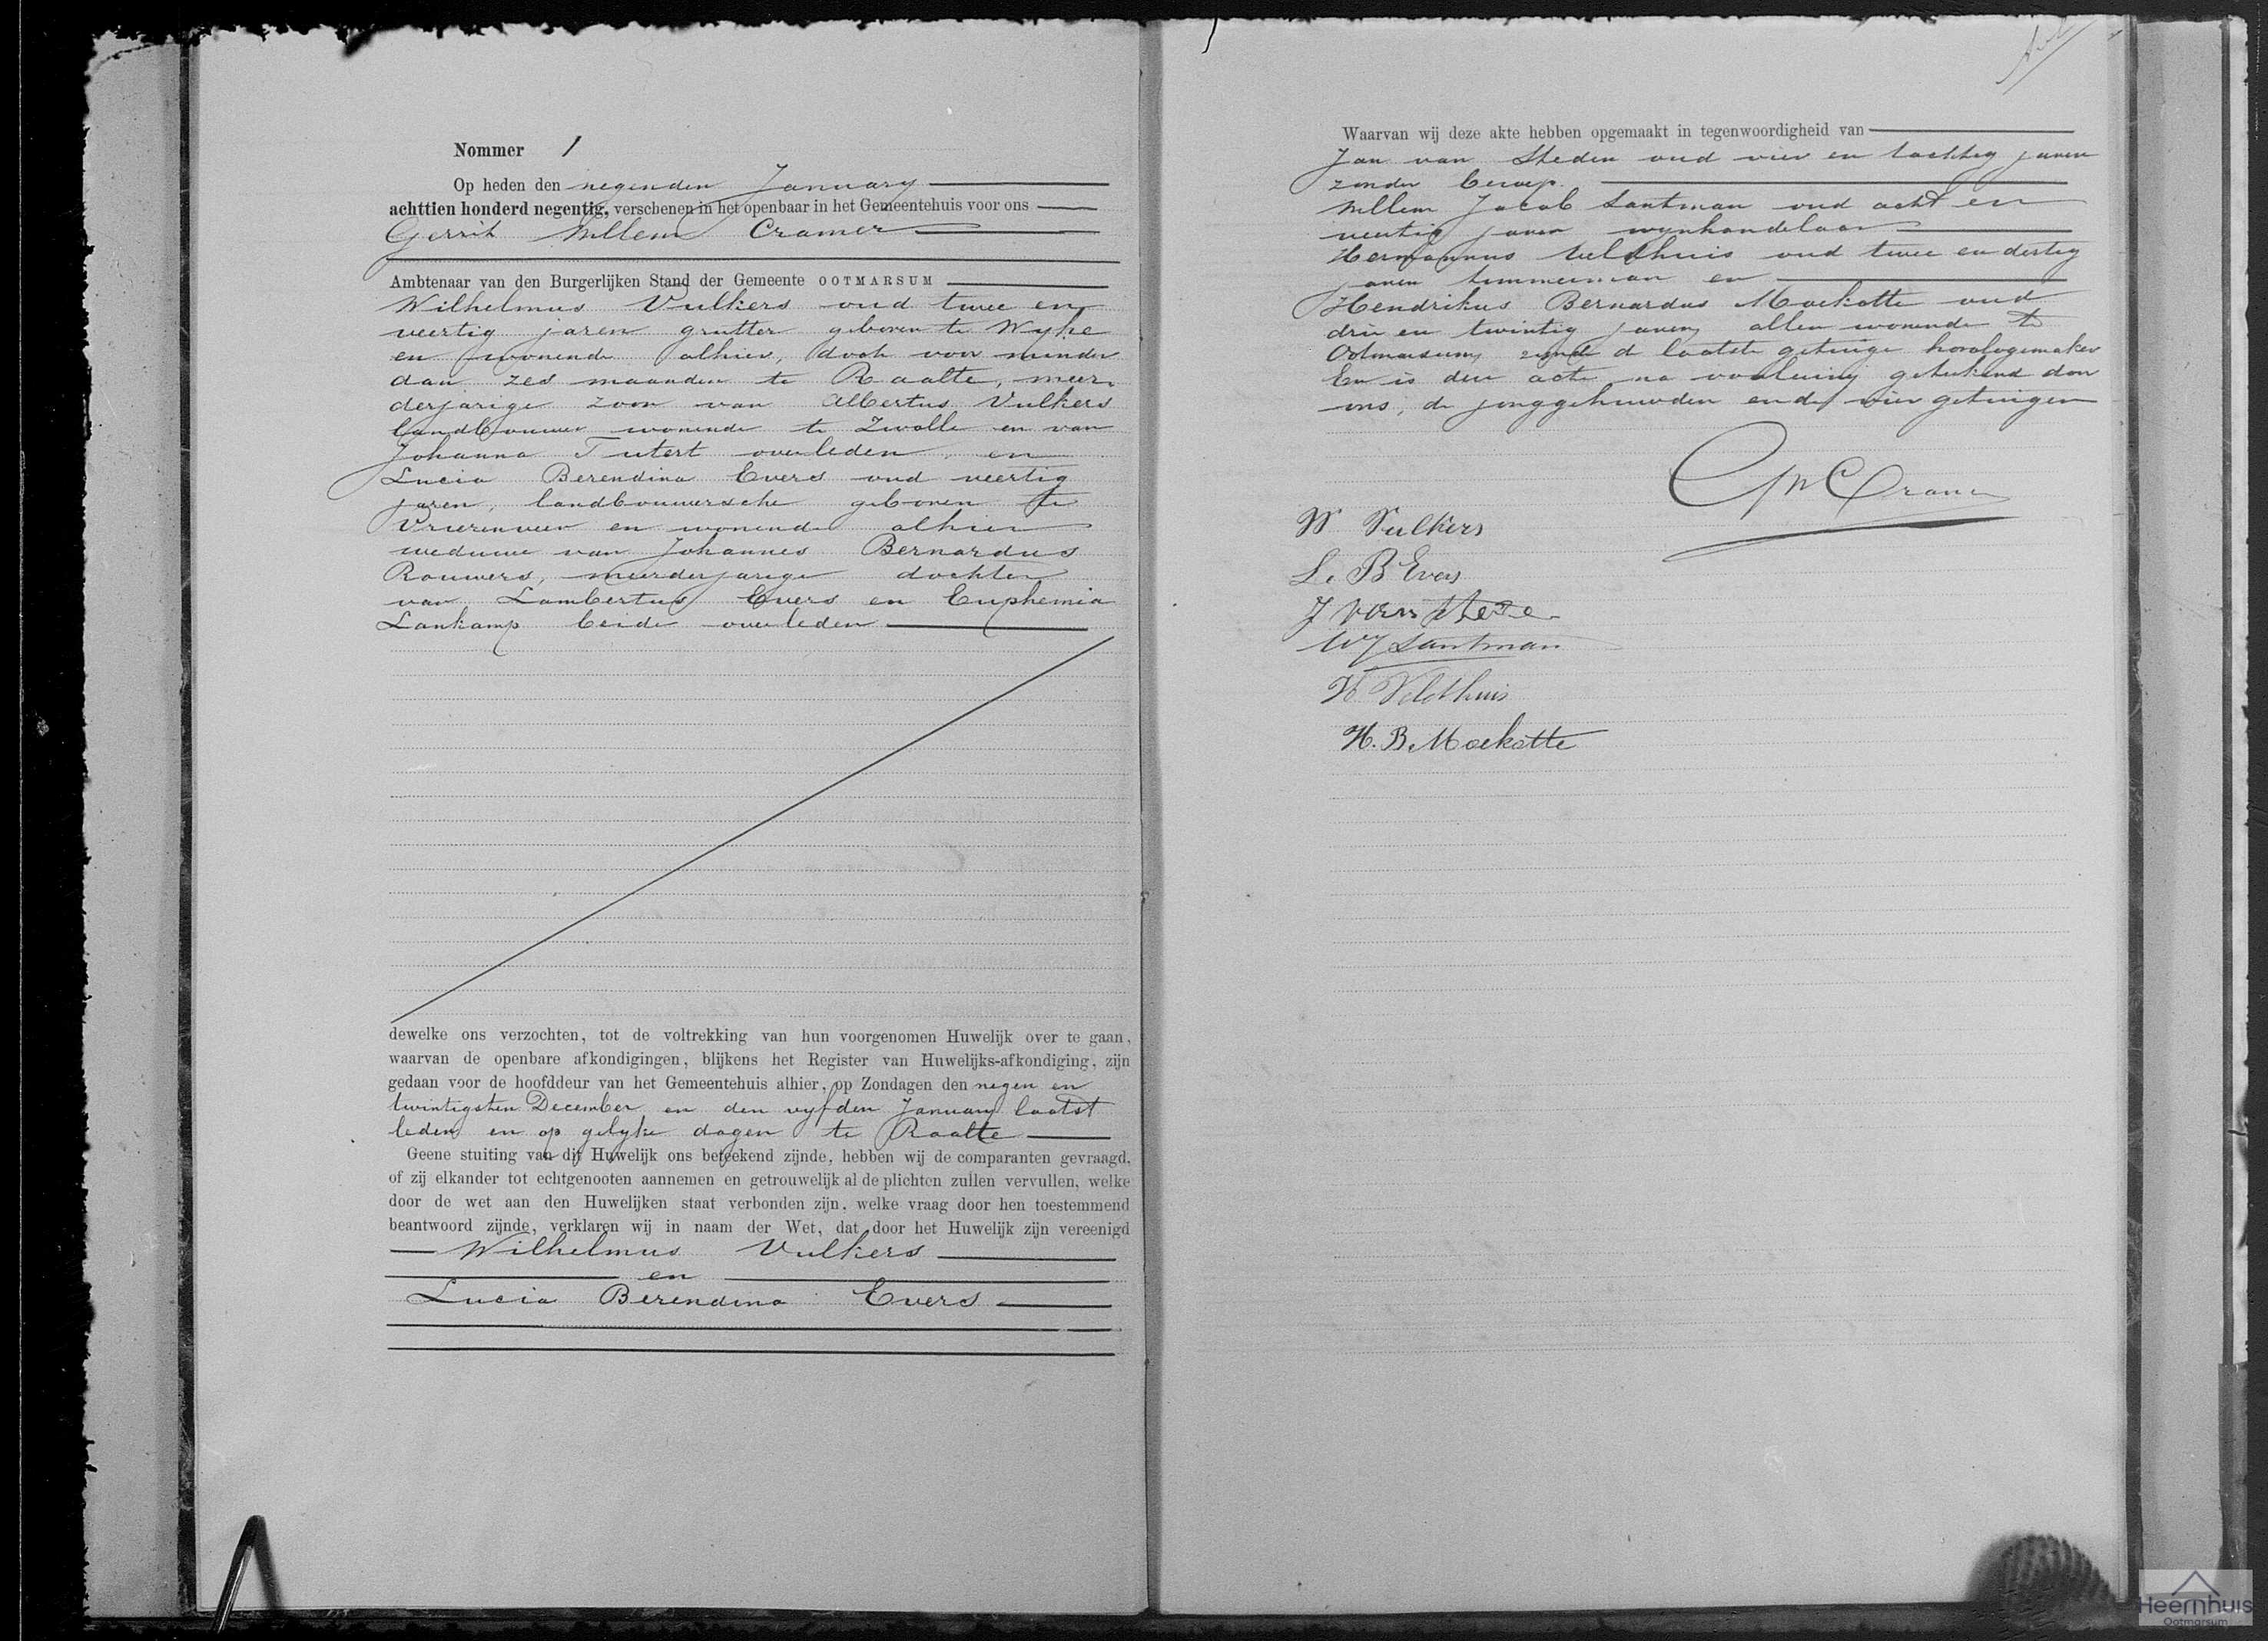 Nommer 1
Op heden den negenden January
achttien honderd negentig, verschenen in het openbaar in het Gemeentehuis voor ons
Gerrit Willem Cramer
Ambtenaar van den Burgerlijken Stand der Gemeente OOTMARSUM
Wilhelmus Vulkers oud twee en
veertig jaren grutter geboren te Wyhe
en wonende alhier, doch voor minder
dan zes maanden te Raalte, meer
derjarige zoon van Albertus Vulkers
landbouwer wonende te Zwolle en van
Johanna Tutert overleden, en
Lucia Berendina Evers oud veertig
jaren, landbouwersche geboren te
Vriezenveen en wonende alhier
weduwe van Johannes Bernardus
Rouwers, meerderjarige dochter
van Lambertus Evers en Euphemia
Lankamp beide overleden
dewelke ons verzochten, tot de voltrekking van hun voorgenomen Huwelijk over te gaan,
waarvan de openbare afkondigingen, blijkens het Register van Huwelijks-afkondiging, zijn
gedaan voor de hoofddeur van het Gemeentehuis alhier, op Zondagen den negen en
twintigsten December en den vyfden January laatst
leden en op gelyke dagen te Raalte
Geene stuiting van dit Huwelijk ons beteekend zijnde, hebben wij de comparanten gevraagd,
of zij elkander tot echtgenooten aannemen en getrouwelijk al de plichten zullen vervullen, welke
door de wet aan den Huwelijken staat verbonden zijn, welke vraag door hen toestemmend
beantwoord zijnde, verklaren wij in naam der Wet, dat door het Huwelijk zijn vereenigd
Wilhelmus Vulkers
en
Lucia Berendina Evers
Waarvan wij deze akte hebben opgemaakt in tegenwoordigheid van
Jan van Steden oud vier en tachtig jaren
zonder beroep.
Willem Jacob Santman oud acht en
veertig jaren wynhandelaar
Hermannus Veldhuis oud twee en dertig
jaren timmerman en
Hendrikus Bernardus Moekotte oud
drie en twintig jaren, allen wonende te
Ootmarsum, zynde de laatste getuige horologemaker
En is deze acte na voorlezing geteekend door
ons, de jonggehuwden en de vier getuigen
GW Cramer
W Vulkers
L. B Evers
J van Stede
WJ Santman
H Veldhuis
H. B. Moekotte
Heernhuis
Ootmarsum